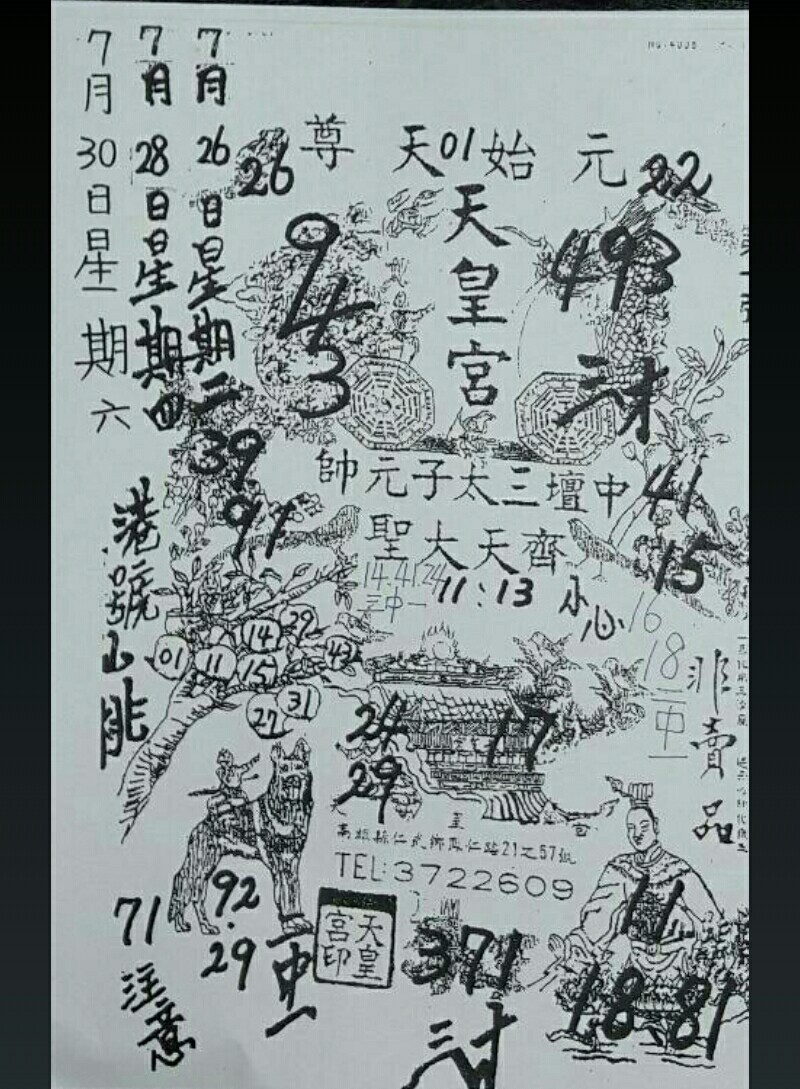 NO.4006
7月26日星期二
7月28日星期四
7月30日星期六
元始天尊
01
26
22
天皇宮
943
493
三才
39
91
中壇三太子元帥
41
齊天大聖
15
14.41.24
三中一
11:13
小心
16
18
二中一
港號
01
11
14
29
15
43
27
31
24
29
17
非賣品
高雄縣仁武鄉
仁路21之57號
TEL:3722609
92.29
二中一
71
注意
天皇宮印
371
三才
11
18
81